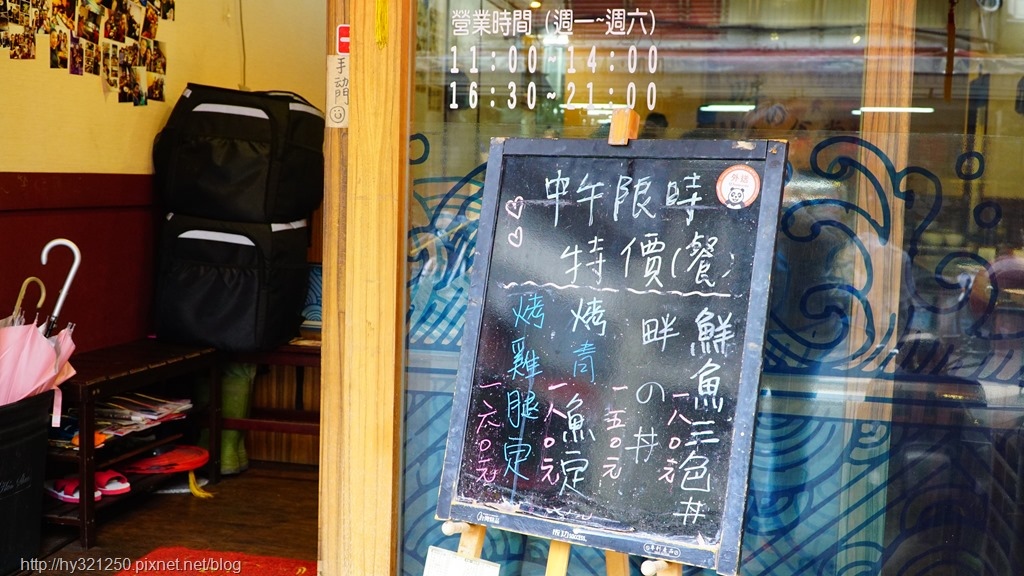 營業時間 (週一~週六)
11:00~14:00
16:30~21:00
一
手動門
中午限時
特價(餐)
鮮魚三色丼
一八〇元
畔の丼
一五〇元
烤青魚定
一八〇元
烤雞腿定
一六〇元
http://hy321250.pixnet.net/blog